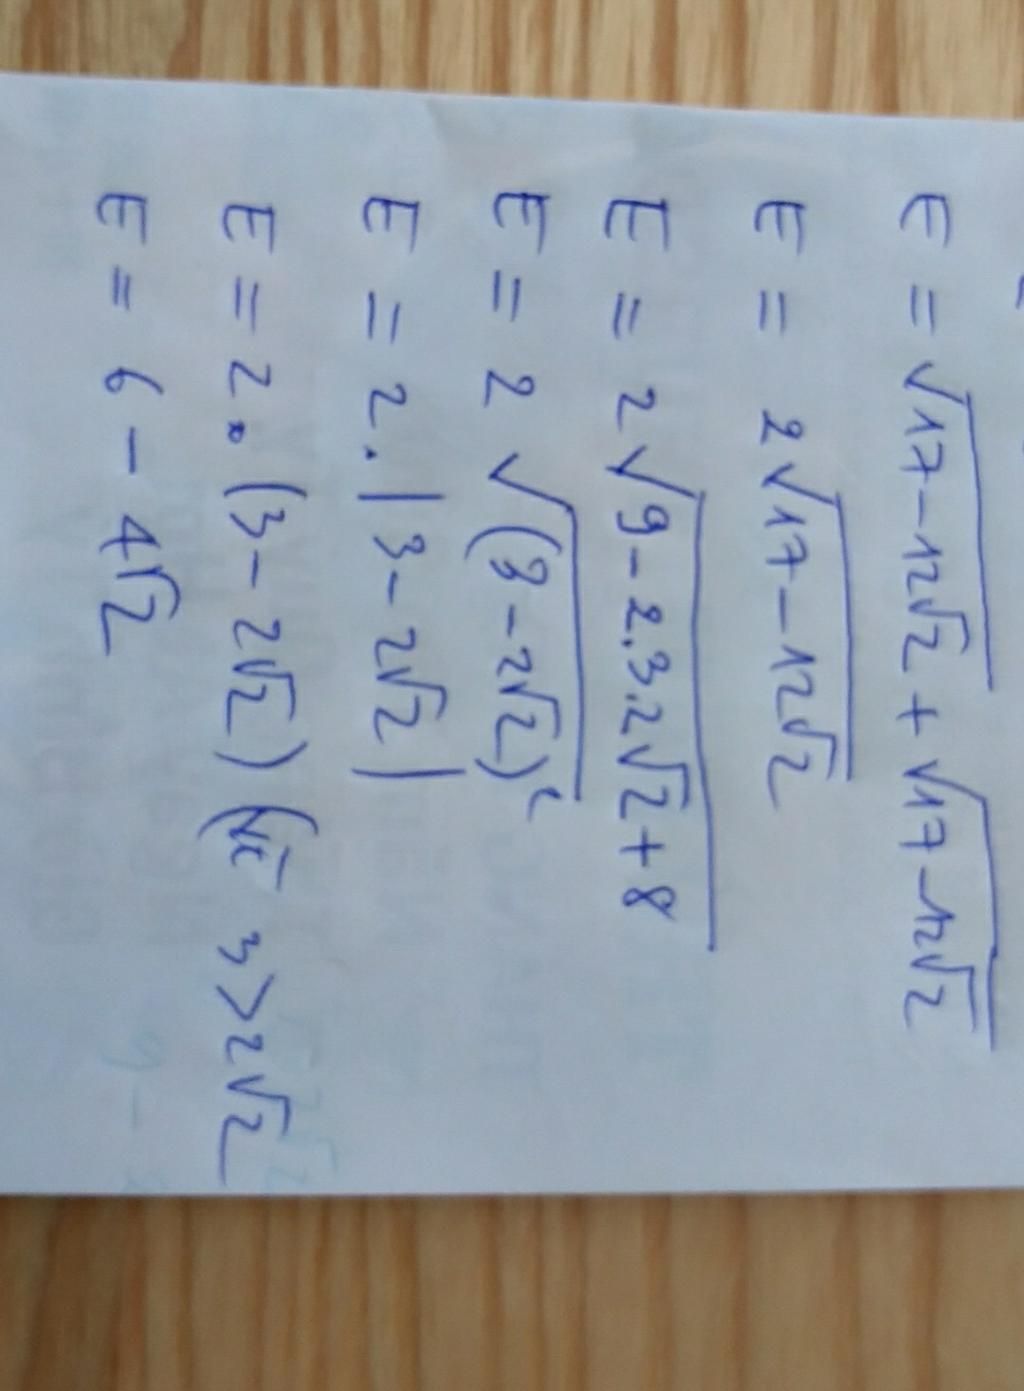 E = √17-12√2 + √17-12√2
E = 2√17-12√2
E = 2√9-2.3.2√2+8
E = 2√(3-2√2)²
E = 2.|3-2√2|
E = 2.(3-2√2) (vì 3>2√2
E = 6-4√2